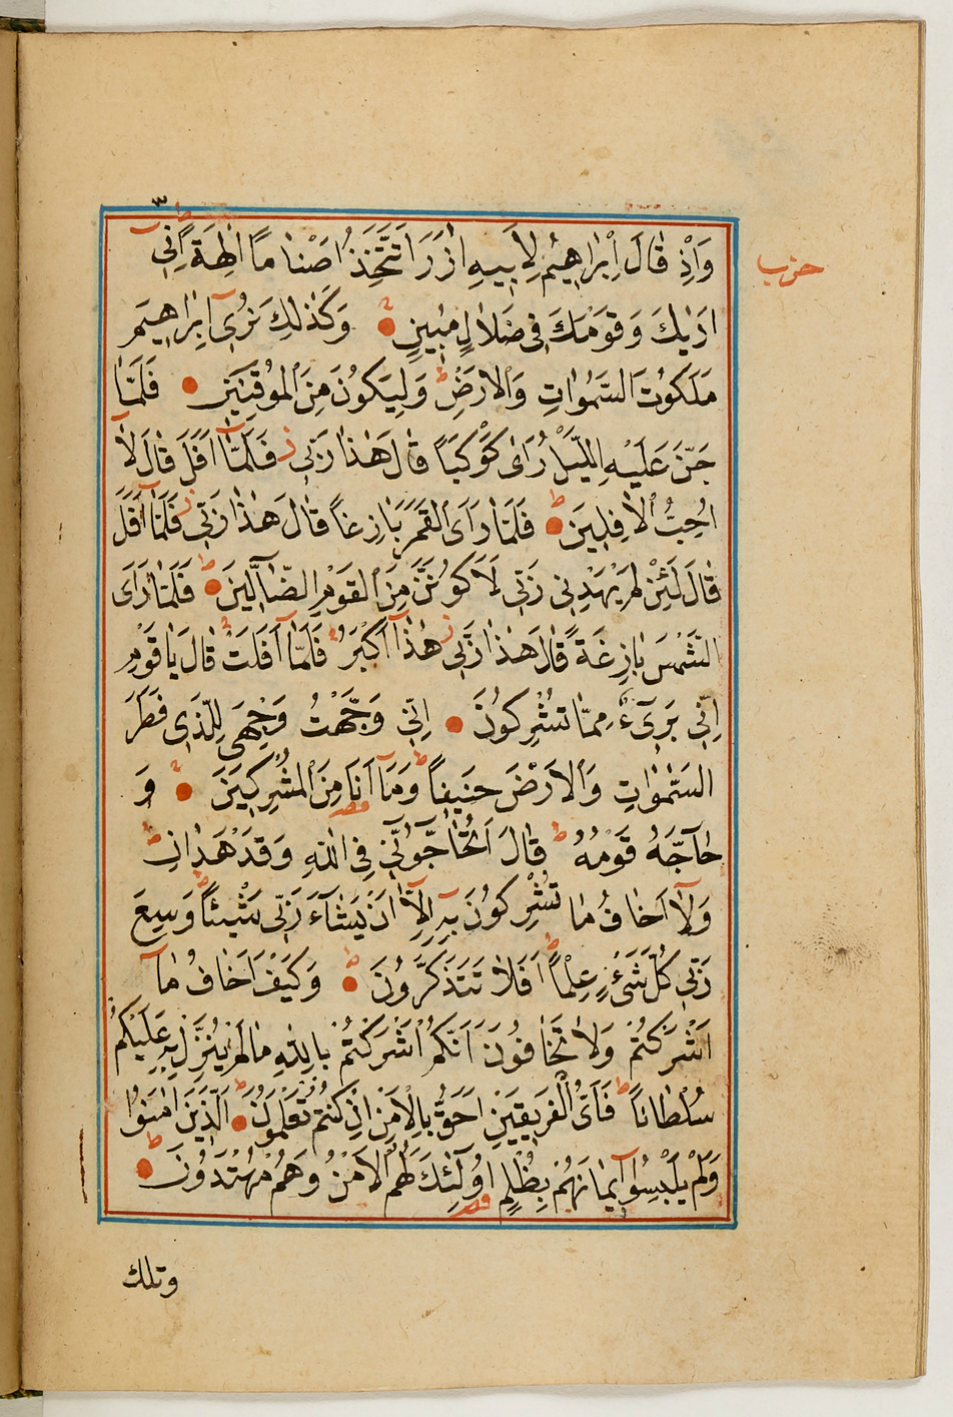 حزب
وَاِذْ قَالَ اِبْرٰاهِيمُ لِاَبِيهِ اٰزَرَ اَتَتَّخِذُ اَصْنَامًا اٰلِهَةً اِنِّي
اَرٰيكَ وَقَوْمَكَ فِي ضَلَالٍ مُبِينٍ وَكَذٰلِكَ نُرِي اِبْرٰاهِيمَ
مَلَكُوتَ السَّمٰوَاتِ وَالْاَرْضِ وَلِيَكُونَ مِنَ الْمُوقِنِينَ فَلَمَّا
جَنَّ عَلَيْهِ اللَّيْلُ رَاٰى كَوْكَبًا قَالَ هٰذَا رَبِّي فَلَمَّا اَفَلَ قَالَ لَا
اُحِبُّ الْاٰفِلِينَ فَلَمَّا رَاَى الْقَمَرَ بَازِغًا قَالَ هٰذَا رَبِّي فَلَمَّا اَفَلَ
قَالَ لَئِنْ لَمْ يَهْدِنِي رَبِّي لَاَكُونَنَّ مِنَ الْقَوْمِ الضَّالِّينَ فَلَمَّا رَاَى
الشَّمْسَ بَازِغَةً قَالَ هٰذَا رَبِّي هٰذَا اَكْبَرُ فَلَمَّا اَفَلَتْ قَالَ يَا قَوْمِ
اِنِّي بَرِيءٌ مِمَّا تُشْرِكُونَ اِنِّي وَجَّهْتُ وَجْهِيَ لِلَّذِي فَطَرَ
السَّمٰوَاتِ وَالْاَرْضَ حَنِيفًا وَمَا اَنَا مِنَ الْمُشْرِكِينَ وَ
حَاجَّهُ قَوْمُهُ قَالَ اَتُحَاجُّونِّي فِي اللّٰهِ وَقَدْ هَدٰانِ
وَلَا اَخَافُ مَا تُشْرِكُونَ بِهِ اِلَّا اَنْ يَشَاءَ رَبِّي شَيْئًا وَسِعَ
رَبِّي كُلَّ شَيْءٍ عِلْمًا اَفَلَا تَتَذَكَّرُونَ وَكَيْفَ اَخَافُ مَا
اَشْرَكْتُمْ وَلَا تَخَافُونَ اَنَّكُمْ اَشْرَكْتُمْ بِاللّٰهِ مَا لَمْ يُنَزِّلْ بِهِ عَلَيْكُمْ
سُلْطَانًا فَاَيُّ الْفَرِيقَيْنِ اَحَقُّ بِالْاَمْنِ اِنْ كُنْتُمْ تَعْلَمُونَ اَلَّذِينَ اٰمَنُوا
وَلَمْ يَلْبِسُوا اِيمَانَهُمْ بِظُلْمٍ اُولٰئِكَ لَهُمُ الْاَمْنُ وَهُمْ مُهْتَدُونَ
وتلك